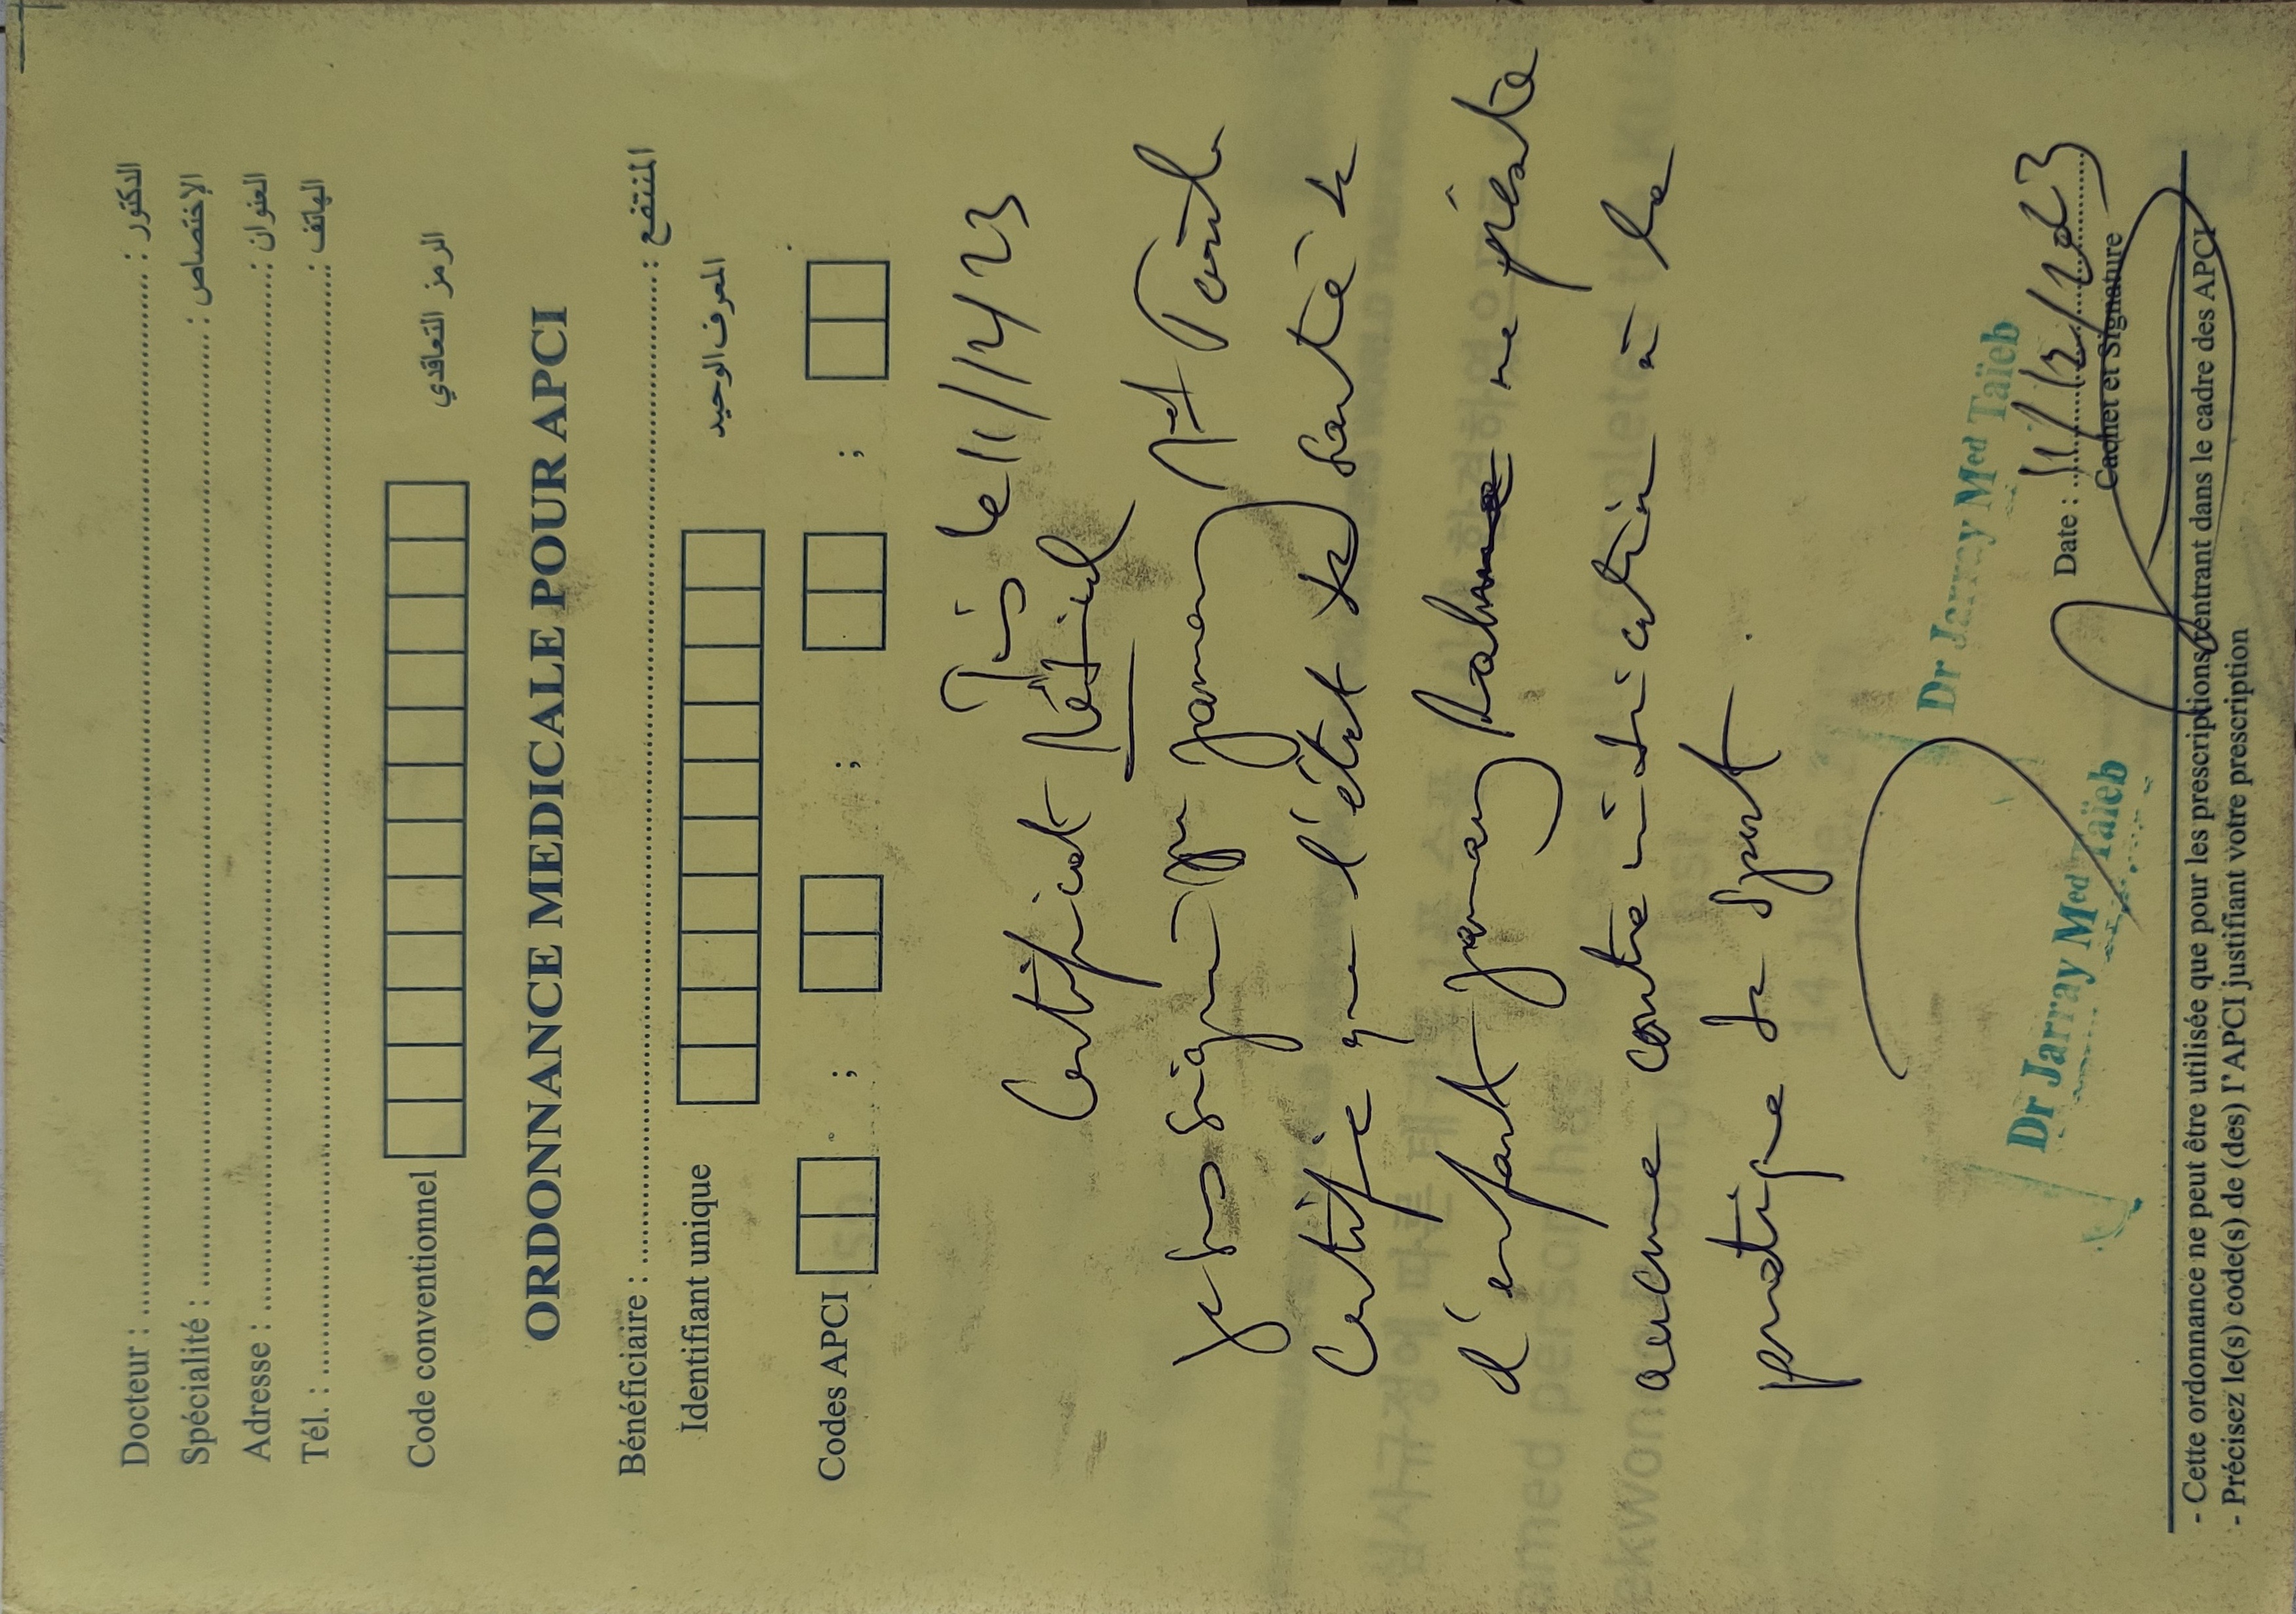 Docteur : ........ : الدكتور
Spécialité : ........ : الإختصاص
Adresse : ........ : العنوان
Tél. : ........ : الهاتف
Code conventionnel الرمز التعاقدي
ORDONNANCE MEDICALE POUR APCI
Bénéficiaire : ........ : المنتفع
Identifiant unique المعرف الوحيد
Codes APCI ; ; ;
Tunis le 11/12/23
Certificat Médical
Je sous signé Dr Jarray Med Taïeb
Certifie que l'état de santé de
l'enfant Jarray ne présente
aucune contre indication à la
pratique de sport.
Dr Jarray Med Taïeb
Dr Jarray Med Taïeb
Date : 11/12/2023
Cachet et Signature
- Cette ordonnance ne peut être utilisée que pour les prescriptions rentrant dans le cadre des APCI
- Précisez le(s) code(s) de (des) l'APCI justifiant votre prescription